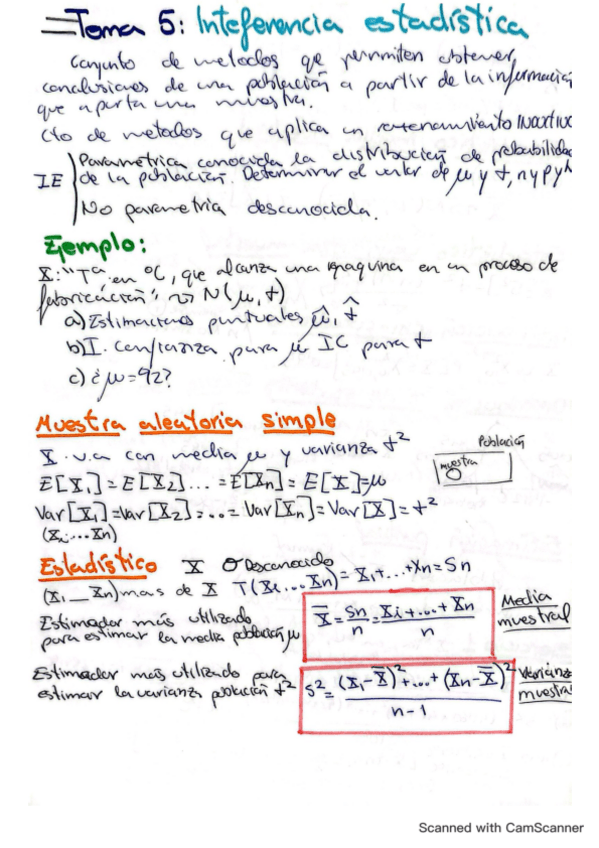 Tema 5: Inteferencia estadística
Conjunto de metodos que permiten obtener
conclusiones de una población a partir de la información
que aporta una muestra.
Cto de metodos que aplica un razonamiento inductivo
IE
Parametrica conocida la distribución de probabilidad
de la población. Determinar el valor de μ y t, n y p y λ
No parametria desconocida.
Ejemplo:
X: "Tª en ºC, que alcanza una maquina en un proceso de
fabricación", ~> N(μ, t)
a) Estimaciones puntuales μ̂, t̂
b) I. confianza para μ IC para t
c) ¿μ=92?
Muestra aleatoria simple
X v.a con media μ y varianza t²
Población
muestra
E[X₁] = E[X₂] ... = E[Xn] = E[X] = μ
Var[X₁] = Var[X₂] = ... = Var[Xn] = Var[X] = t²
(X₁ ... Xn)
Estadístico X θ Desconocido
(X₁ _ Xn) mas de X T(X₁ ... Xn) = X₁ + ... + Xn = Sn
Estimador más utilizado
para estimar la media población μ
X̄ = Sn/n = Xi + ... + Xn / n
Media
muestral
Estimador más utilizado para
estimar la varianza población t²
S² = (X₁ - X̄)² + ... + (Xn - X̄)² / n - 1
Varianza
muestra
Scanned with CamScanner